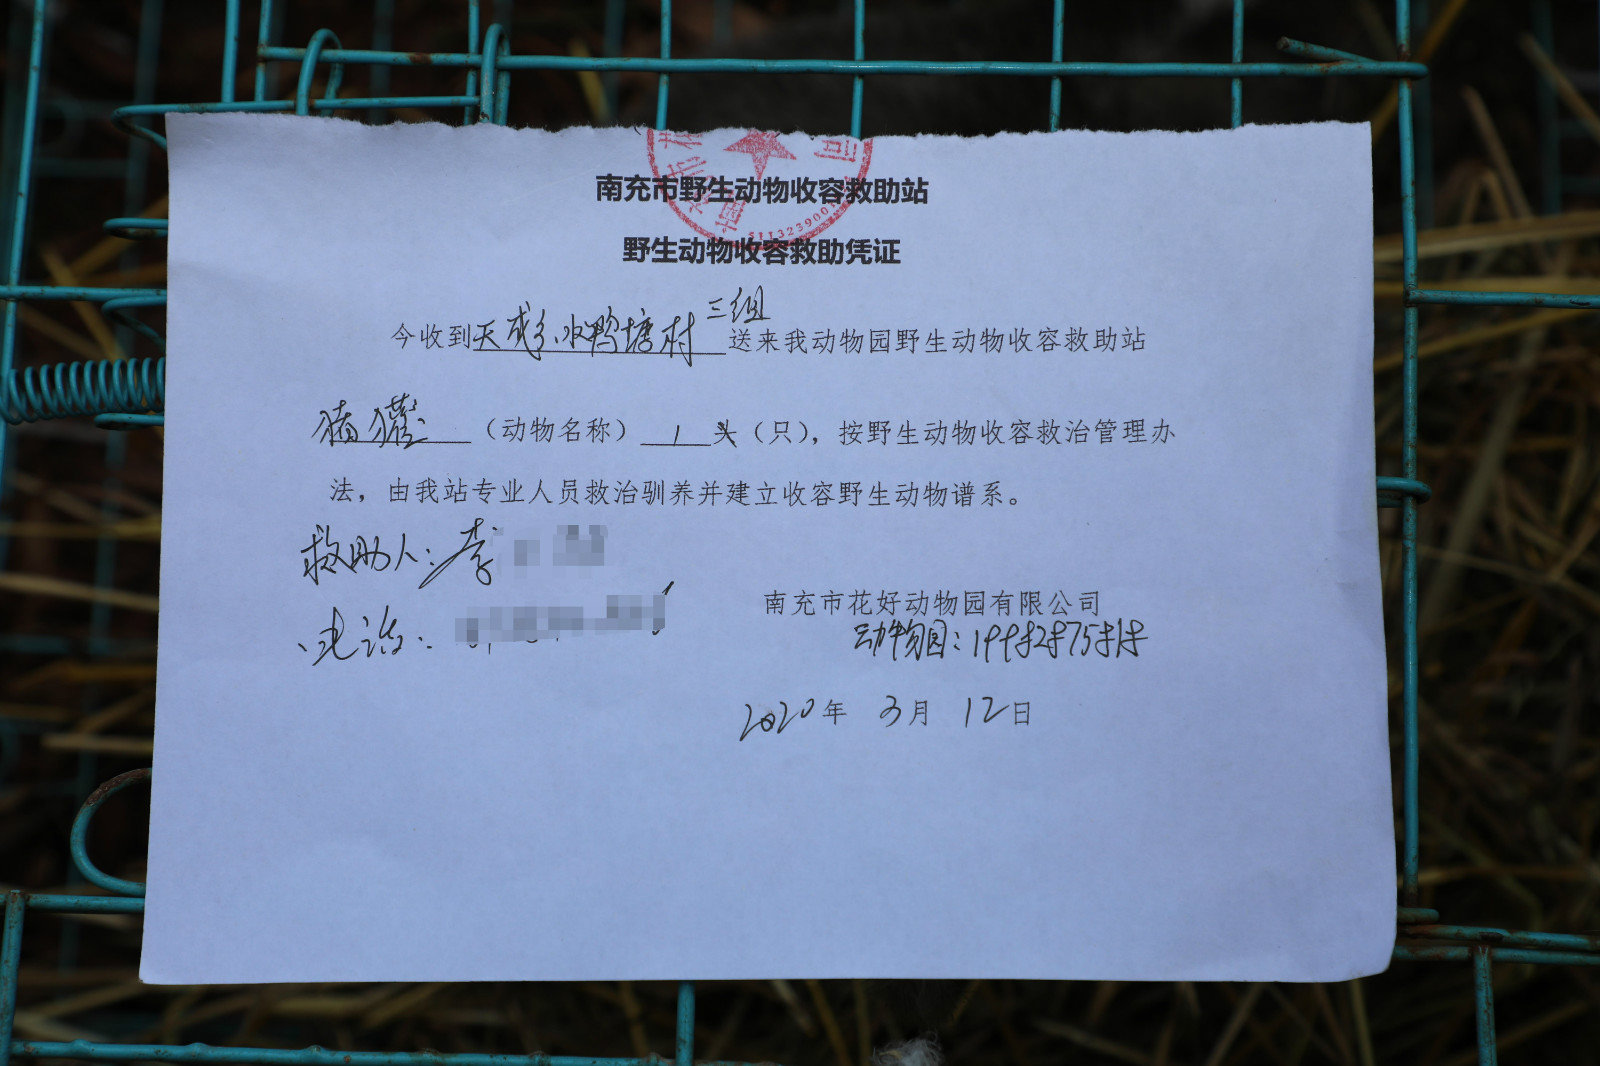 南充市野生动物收容救助站
野生动物收容救助凭证
三组
今收到天成乡水鸭塘村送来我动物园野生动物收容救助站
猪獾（动物名称）1头（只），按野生动物收容救治管理办
法，由我站专业人员救治驯养并建立收容野生动物谱系。
救助人：李
电话：
南充市花好动物园有限公司
动物园：
2020年 3月 12日